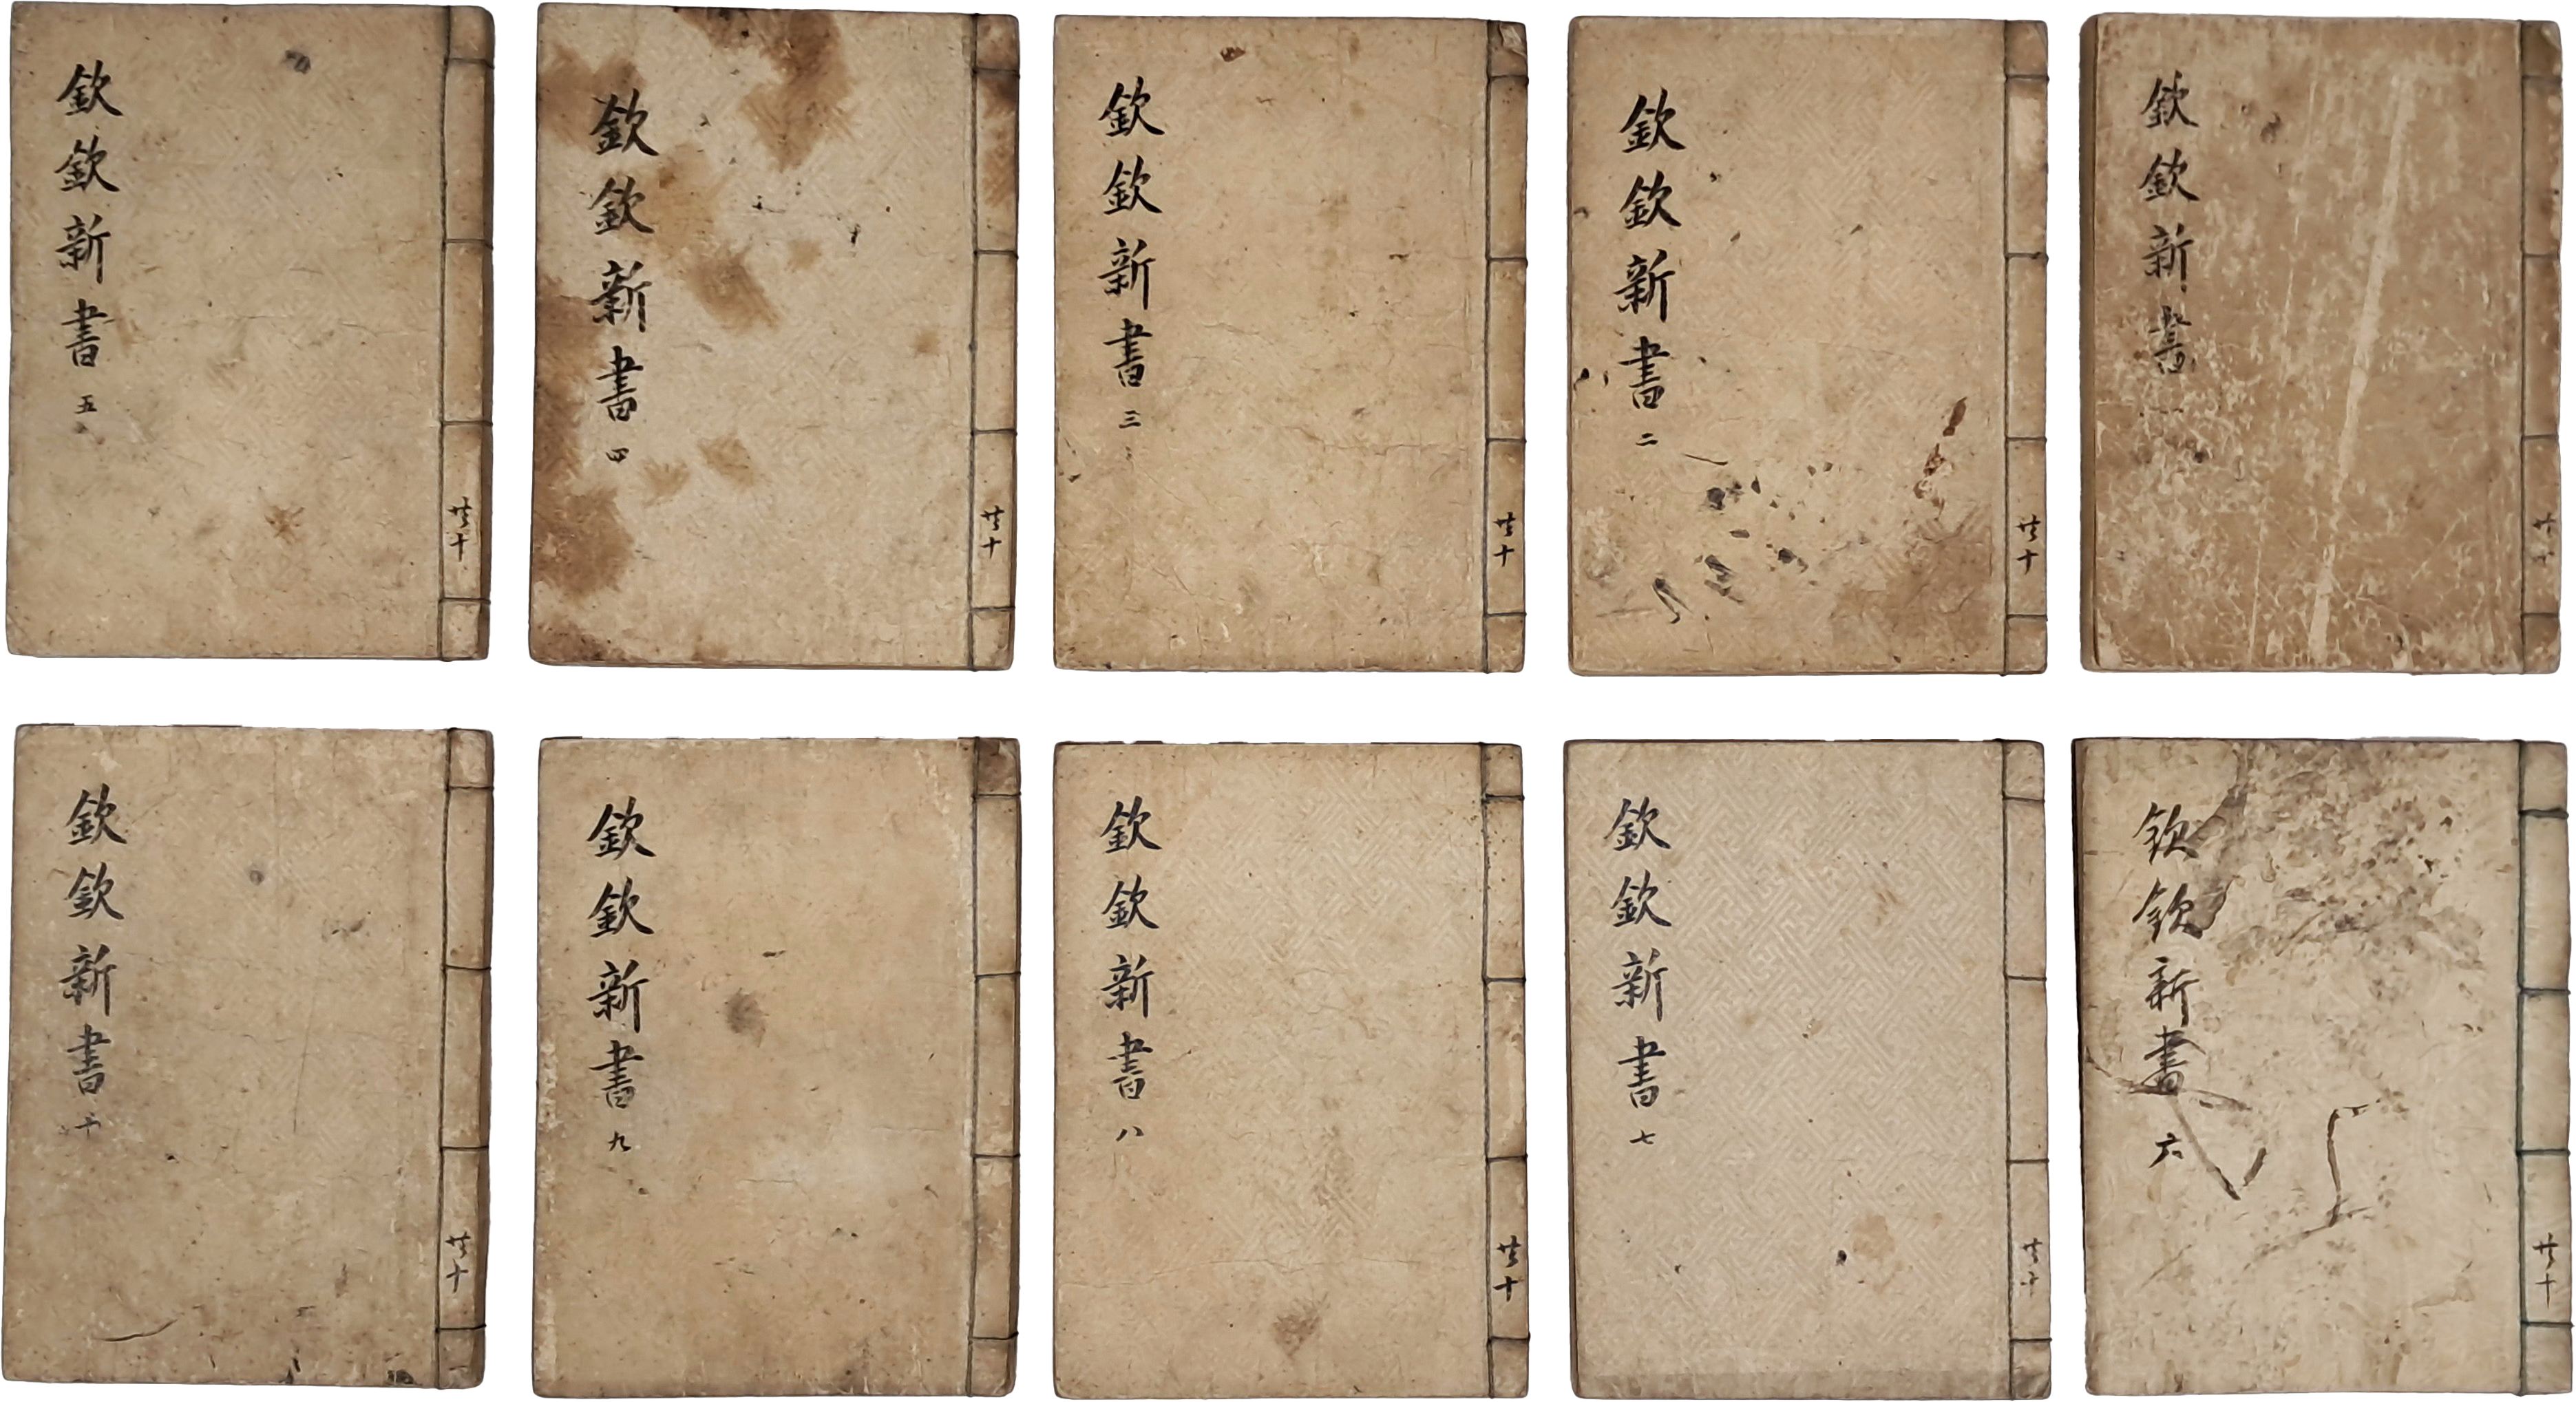 共十
欽欽新書
共十
欽欽新書 二
共十
欽欽新書 三
共十
欽欽新書 四
共十
欽欽新書 五
共十
欽欽新書 六
共十
欽欽新書 七
共十
欽欽新書 八
欽欽新書 九
共十
欽欽新書 十